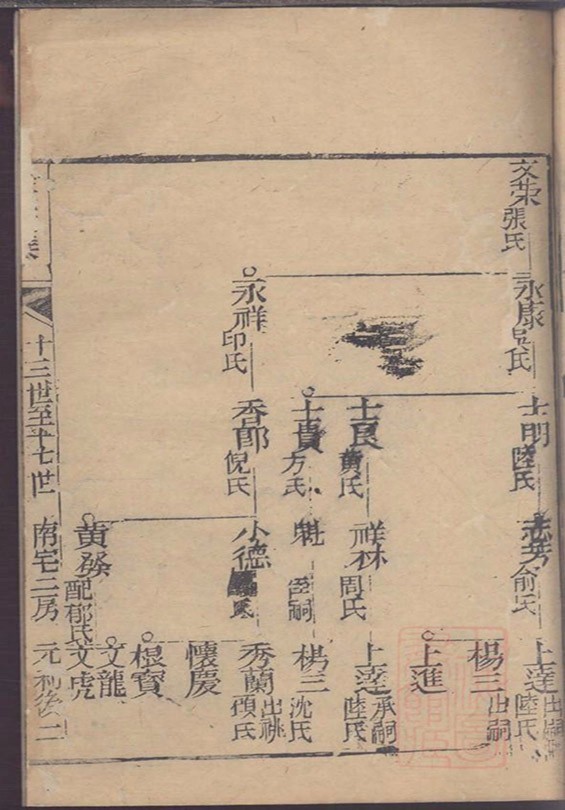 文荣 張氏
永康 吳氏
永祥 印氏
士明 陸氏
士良 黄氏
士貴 方氏
香郎 倪氏
志芳 俞氏
祥林 周氏
魁
小德 氏
黄發 配郁氏
上達 出嗣 陸氏
楊三 出嗣
上進
上達 承嗣 陸氏
楊三 沈氏
秀蘭 出祧 項氏
懷慶
根寶
文龍
文虎
十三世至十七世
南宅三房
元
二